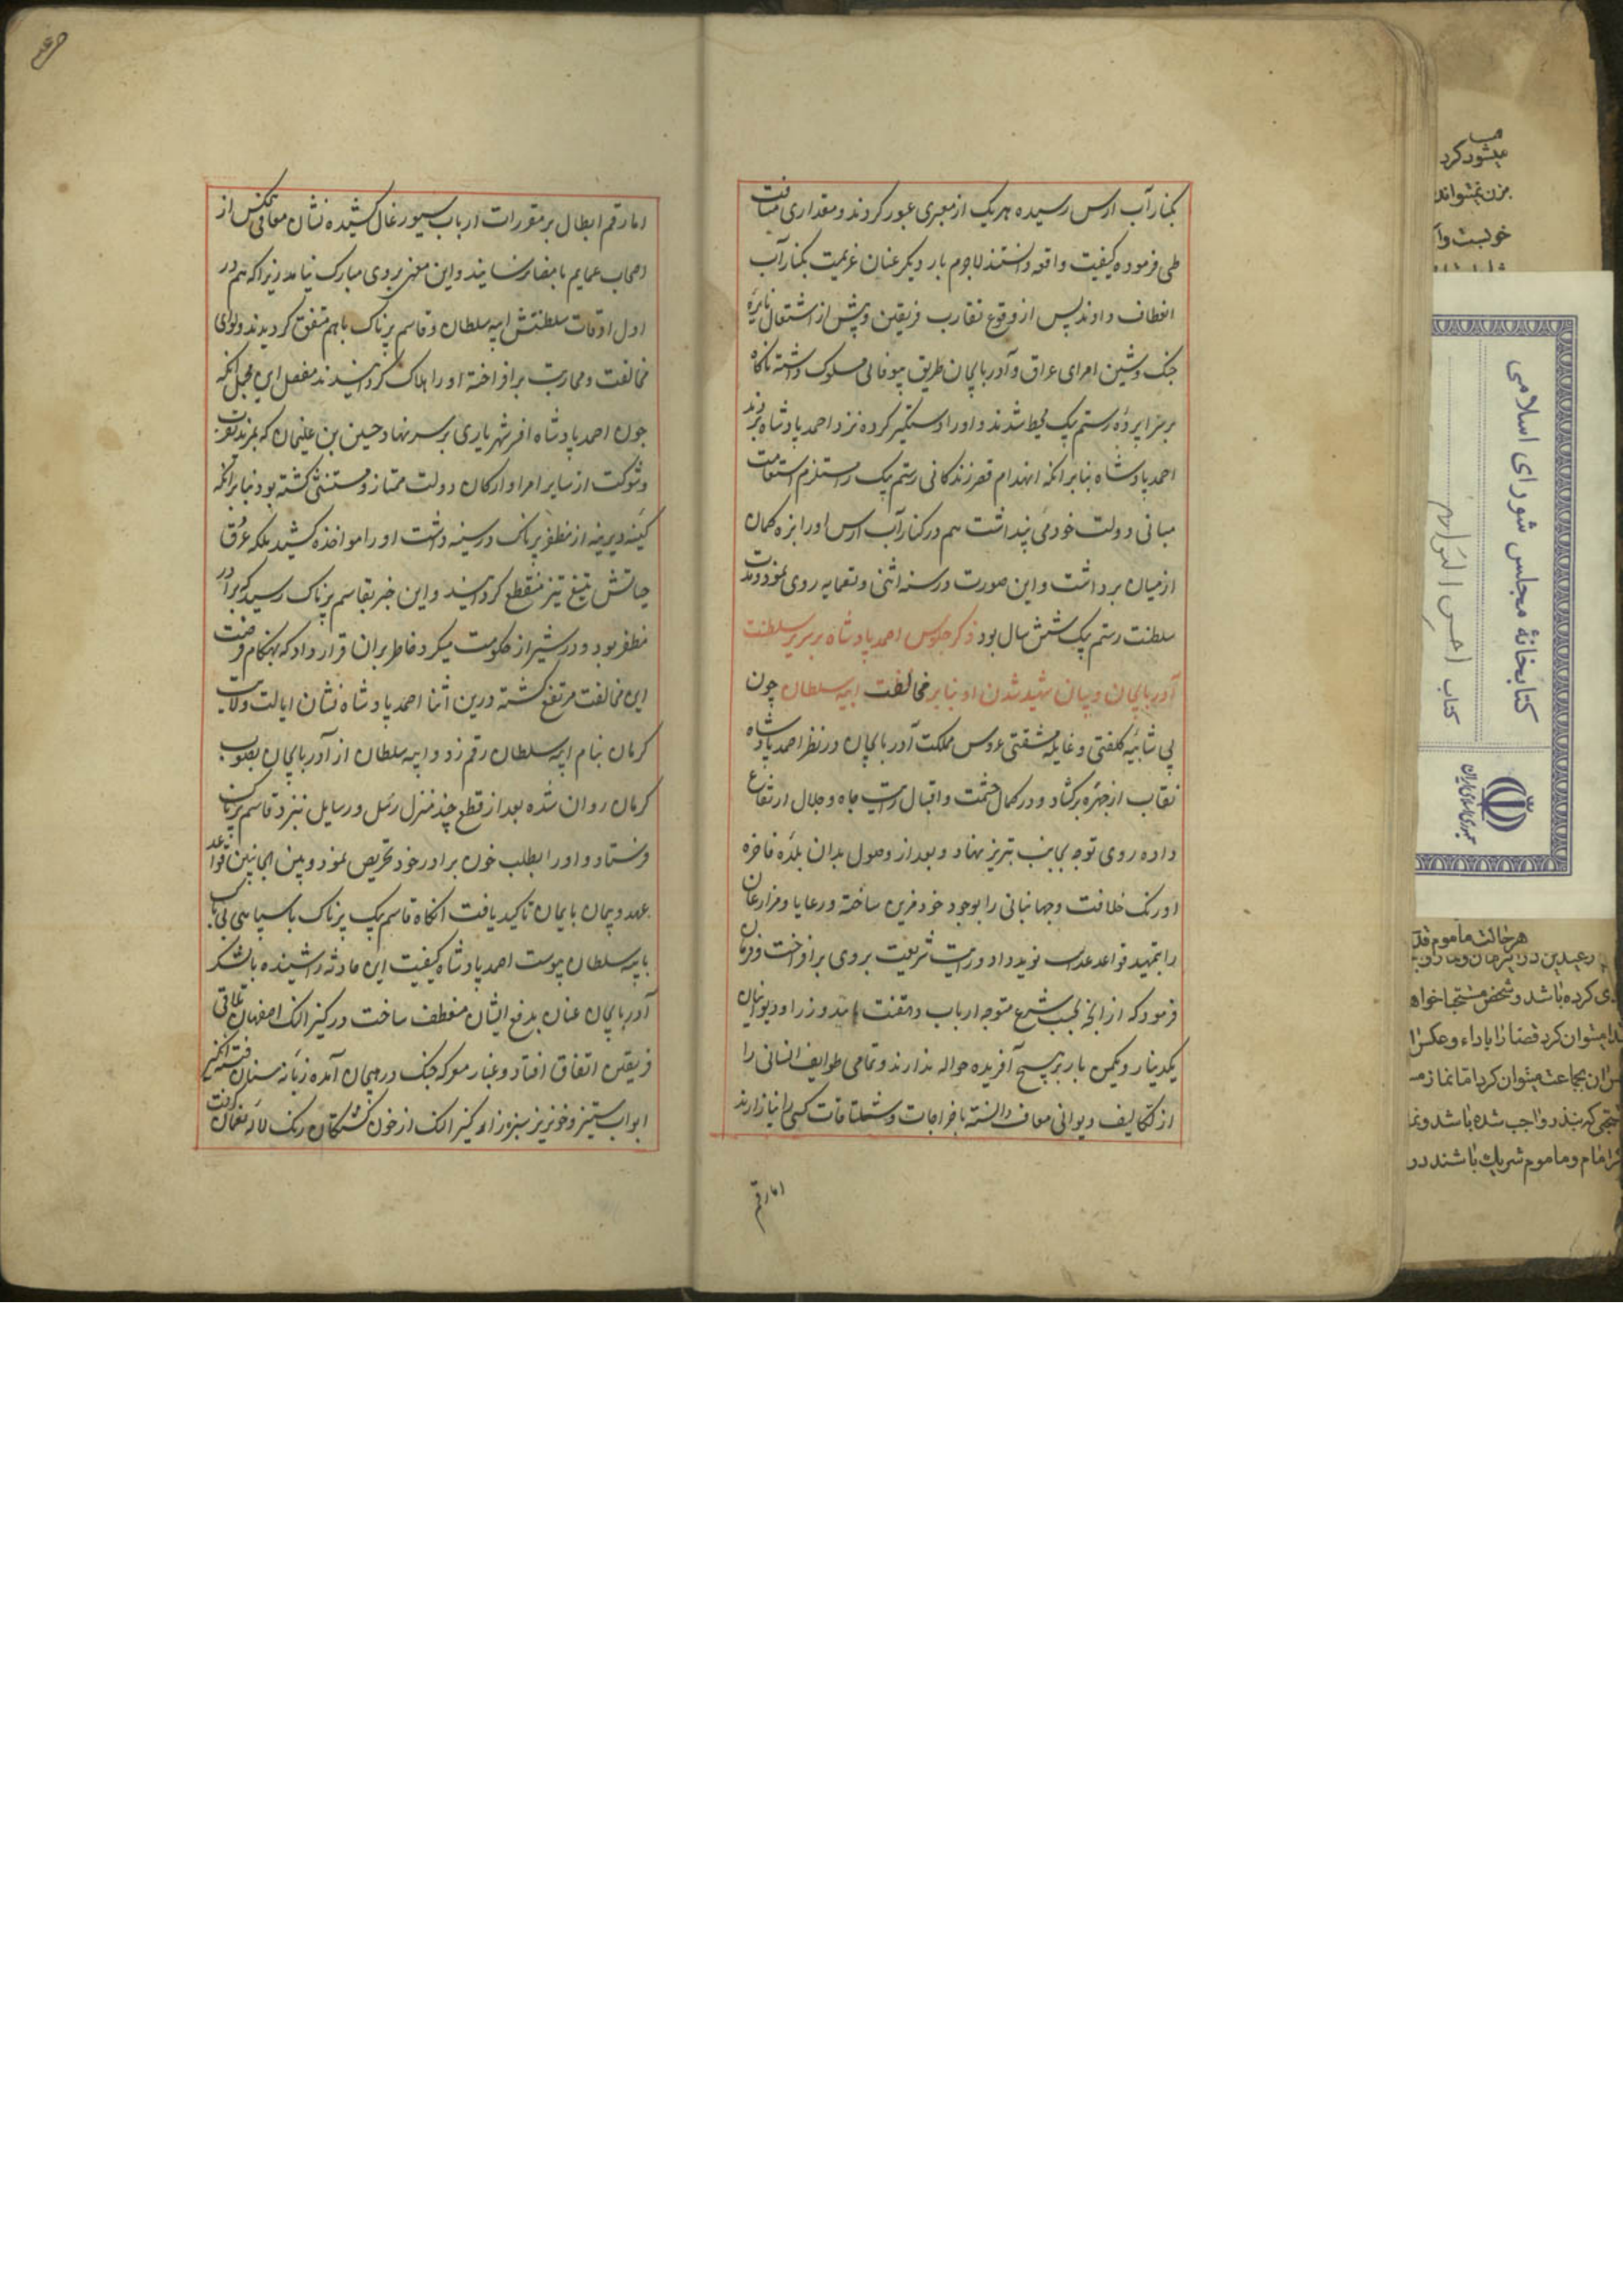 بکنار آب ارس رسیده هر یک از معبری عبور کردند و مقداری مسافت
طی فرموده کیفیت واقعه دانستند لاجرم بار دیکر عنان عزیمت بکنار آب
انعطاف دادند پس از وقوع تقارب فریقین و پیش از اشتعال نایره
جنک و شین امرای عراق و آذربایجان طریق بیوفائی مسلوک داشته ناکاه
بر سراپرده رستم بیک محیط شدند و او را دستکیر کرده نزد احمد پادشاه بردند
احمد پادشاه بنابر انکه انهدام قصر زندکانی رستم بیک را مستلزم استقامت
مبانی دولت خود می پنداشت هم در کنار آب ارس او را بزه کمان
از میان برداشت و این صورت در سنه اثنی و تسعمایه روی نمود و مدت
سلطنت رستم بیک شش سال بود ذکر جلوس احمد پادشاه بر سریر سلطنت
آذربایجان و بیان شهید شدن او بنابر مخالفت ایبه سلطان چون
بی شائبه کلفتی و غایله مشقتی عروس مملکت آذربایجان در نظر احمد پادشاه
نقاب از چهره برکشاد و در کمال حشمت و اقبال رایت جاه و جلال ارتفاع
داده روی توجه بجانب تبریز نهاد و بعد از وصول بدان بلده فاخره
اورنک خلافت و جهانبانی را بوجود خود مزین ساخته و رعایا و مزارعان
را بتمهید قواعد عدل نوید داد و رایت شریعت پروری برافراخت و فرمان
فرمود که از انچه بحسب شرع متوجه ارباب دهقنت باشد وزرا و دیوانیان
یکدینار و یکمن بار بر هیچ آفریده حواله ندارند و تمامی طوایف انسانی را
از تکالیف دیوانی معاف دانسته باخراجات و شلتاقات کسی را نیازارند
اما رقم
اما رقم ابطال بر مقررات ارباب سیورغال کشیده نشان معافی هیچکس از
اصحاب عمایم بامضا نرسانید و این معنی بروی مبارک نیامد زیرا که هم در
اول اوقات سلطنتش ایبه سلطان و قاسم پرناک باهم متفق کردیدند و لوای
مخالفت و محاربت برافراخته او را هلاک کردانیدند مفصل این مجمل انکه
چون احمد پادشاه افسر شهریاری بر سر نهاد حسین بن علیخان که بمزید تقرب
و شوکت از سایر امرا و ارکان دولت ممتاز و مستثنی کشته بود بنابر انکه
کینه دیرینه از مظفر پرناک در سینه داشت او را مواخذه کشید بلکه عرق
حیاتش بتیغ تیز منقطع کردانید و این خبر بقاسم پرناک رسید که برادر
مظفر بود و در شیراز حکومت میکرد خاطر بران قرار داد که بهنکام فرصت
این مخالفت مرتفع کشته درین اثنا احمد پادشاه نشان ایالت ولایت
کرمان بنام ایبه سلطان رقم زد و ایبه سلطان از آذربایجان بصوب
کرمان روان شده بعد از قطع چند منزل رسل و رسایل نزد قاسم پرناک
فرستاد و او را بطلب خون برادر خود تحریص نمود و بین الجانبین قواعد
عهد و پیمان بایمان تاکید یافت انکاه قاسم بیک پرناک با سپاهی بی باک
بایبه سلطان پیوست احمد پادشاه کیفیت این حادثه را شنیده با لشکر
آذربایجان عنان بدفع ایشان منعطف ساخت در کیز النک اصفهان تلاقی
فریقین اتفاق افتاد و غبار معرکه جنک در هیجان آمده زبانه سنان فتنه انکیز
ابواب ستیز و خونریز سبزه زار کیز النک از خون کشتکان رنک لاله نعمان کرفت
کتابخانهٔ مجلس شورای اسلامی
کتاب احسن التواریخ
جمهوری اسلامی ایران
میشود کرد
هر حالت ماموم قد
ی کرده باشد و شخص
میتوان کرد قضا را باداء و عکس
ان بجماعت میتوان کرد اما نماز
که بنذر واجب شده باشد و نما
امام و ماموم شریک باشند در